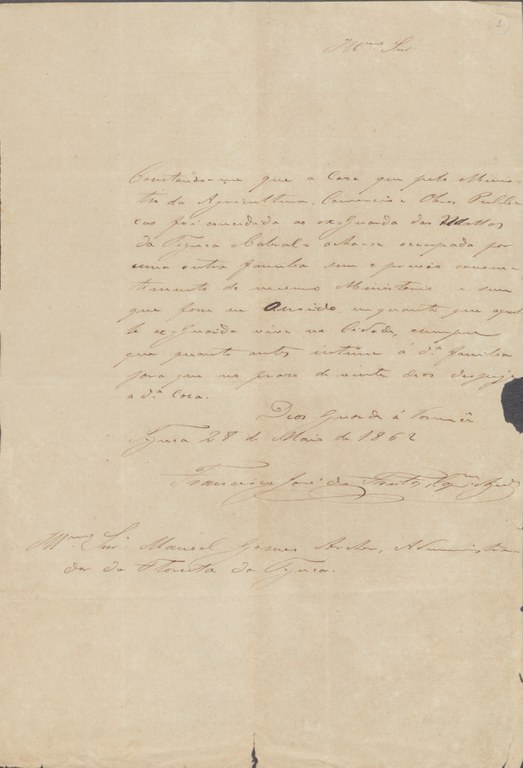 Illmo Snr
Constando-me que a Casa que pelo Minis-
terio da Agricultura, Comercio e Obras Publi-
cas foi concedida ao ex-Guarda das Mattas
da Tijuca Cabral acha-se ocupada por
uma outra familia sem o previo consen-
timento do mesmo Ministerio e sem
que fosse eu ouvido, emquanto que aquel-
le ex-Guarda vive na Cidade, cumpre
que quanto antes intime á dª familia
para que no praso de vinte dias despeje
a dª Casa.
Deos Guarde á Vossmcê
Tijuca 28 de Maio de 1862
Francisco José da
Illmo Snr Manoel Gomes Archer, Administra-
dor da Floresta da Tijuca.